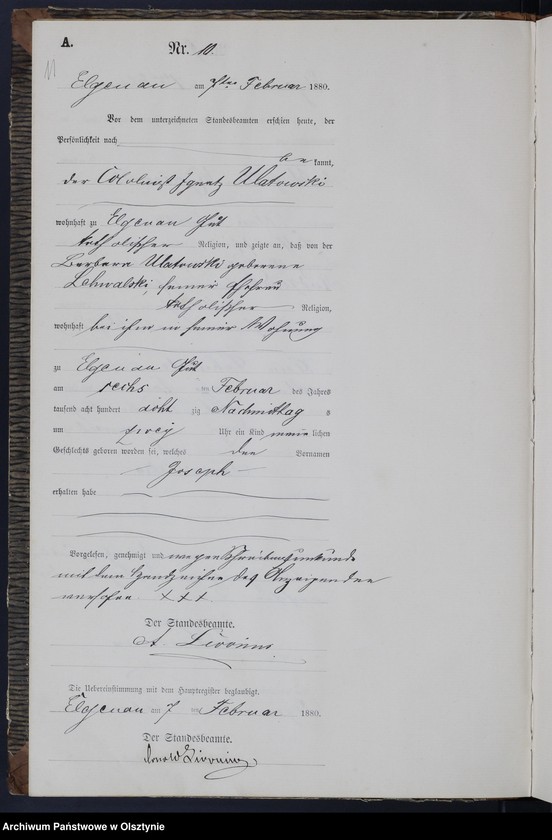 A.
Nr. 10.
11
Elgenau am 7ten Februar 1880.
Vor dem unterzeichneten Standesbeamten erschien heute, der
Persönlichkeit nach
be kannt,
der Ignatz Ulatowski
wohnhaft zu Elgenau Gut
katholischer Religion, und zeigte an, daß von der
Barbara Ulatowski geborene
Lehwalski, seiner Ehefrau
katholischer Religion,
wohnhaft bei ihm in seiner Wohnung
zu Elgenau Gut
am sechs ten Februar des Jahres
tausend acht hundert acht zig Nachmittag s
um zwei Uhr ein Kind männ lichen
Geschlechts geboren worden sei, welches den Vornamen
Joseph
erhalten habe
Vorgelesen, genehmigt und wegen Schreibensunkunde
mit dem Handzeichen des Anzeigenden
versehen XXX
Der Standesbeamte.
A.
Die Uebereinstimmung mit dem Hauptregister beglaubigt.
Elgenau am 7 ten Februar 1880.
Der Standesbeamte.
Arnold
Archiwum Państwowe w Olsztynie